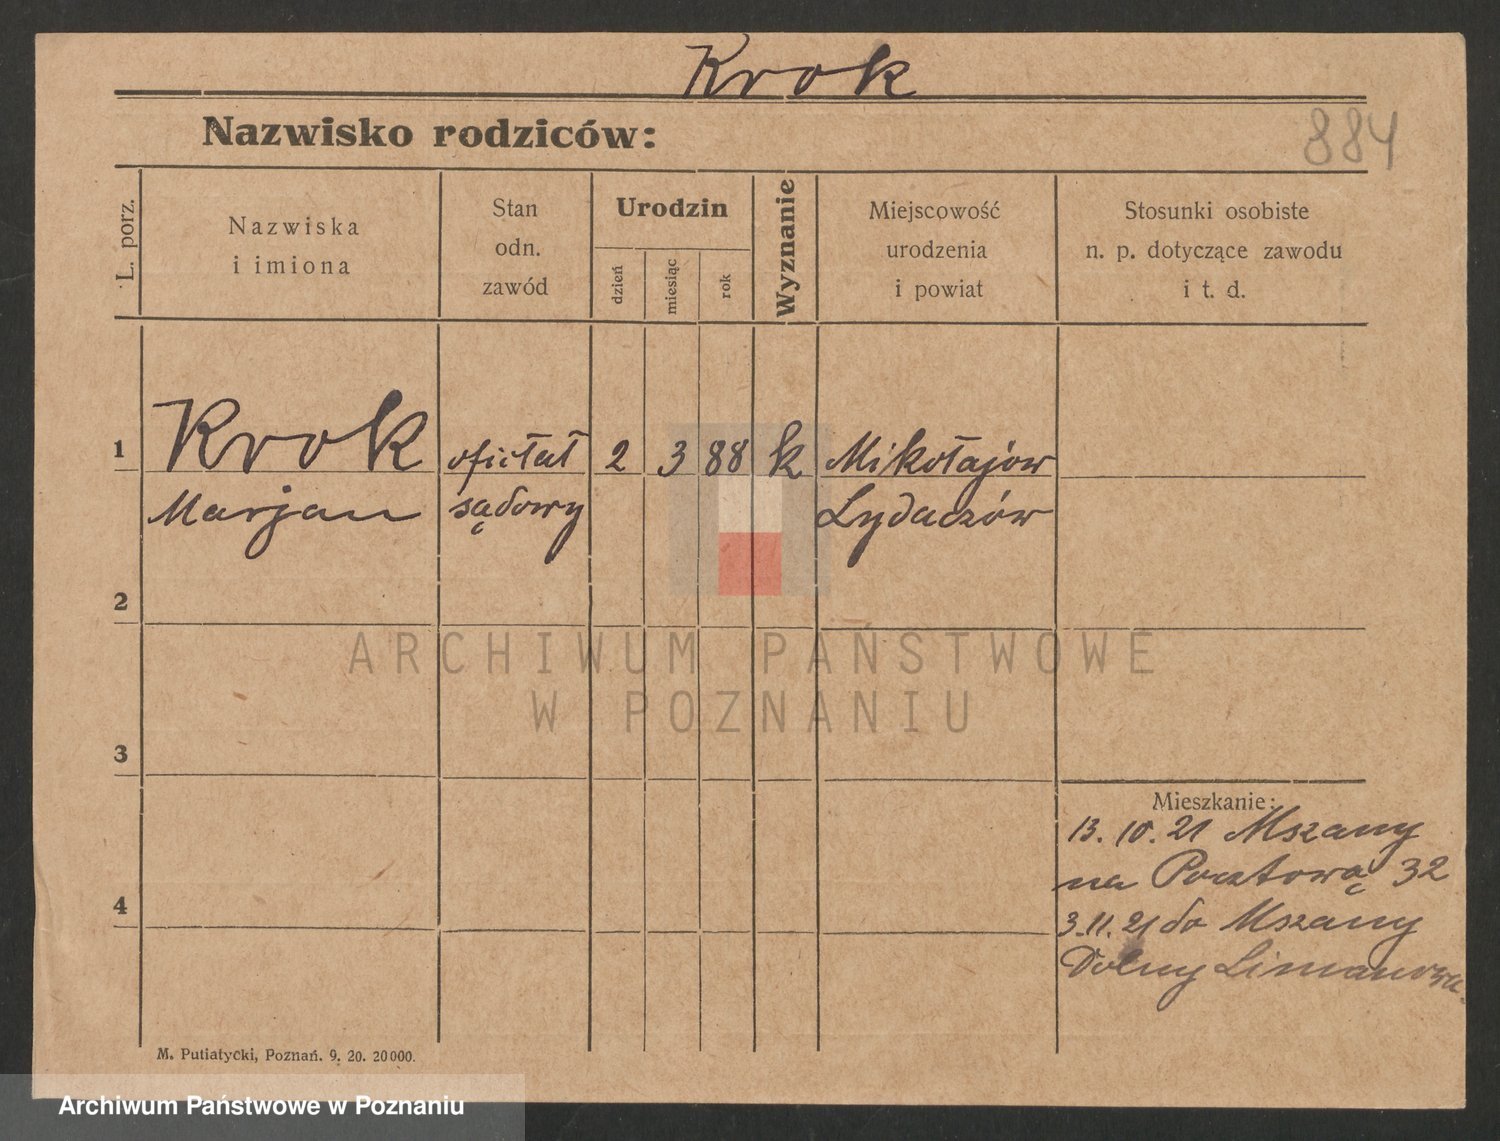 Krok
Nazwisko rodziców:
884
L. porz.
Nazwiska
i imiona
Stan
odn.
zawód
Urodzin
dzień
miesiąc
rok
Wyznanie
Miejscowość
urodzenia
i powiat
Stosunki osobiste
n. p. dotyczące zawodu
i t. d.
1 Krok oficłał 2 3 88 k Mikołajów
Marjan sądowy Lydaczów
2
3
4
Mieszkanie:
13. 10. 21 Mszany
na Pocztową 32
3.11.21 do Mszany
Dolny Limanowa
M. Putiatycki, Poznań. 9. 20. 20000.
ARCHIWUM PAŃSTWOWE
W POZNANIU
Archiwum Państwowe w Poznaniu